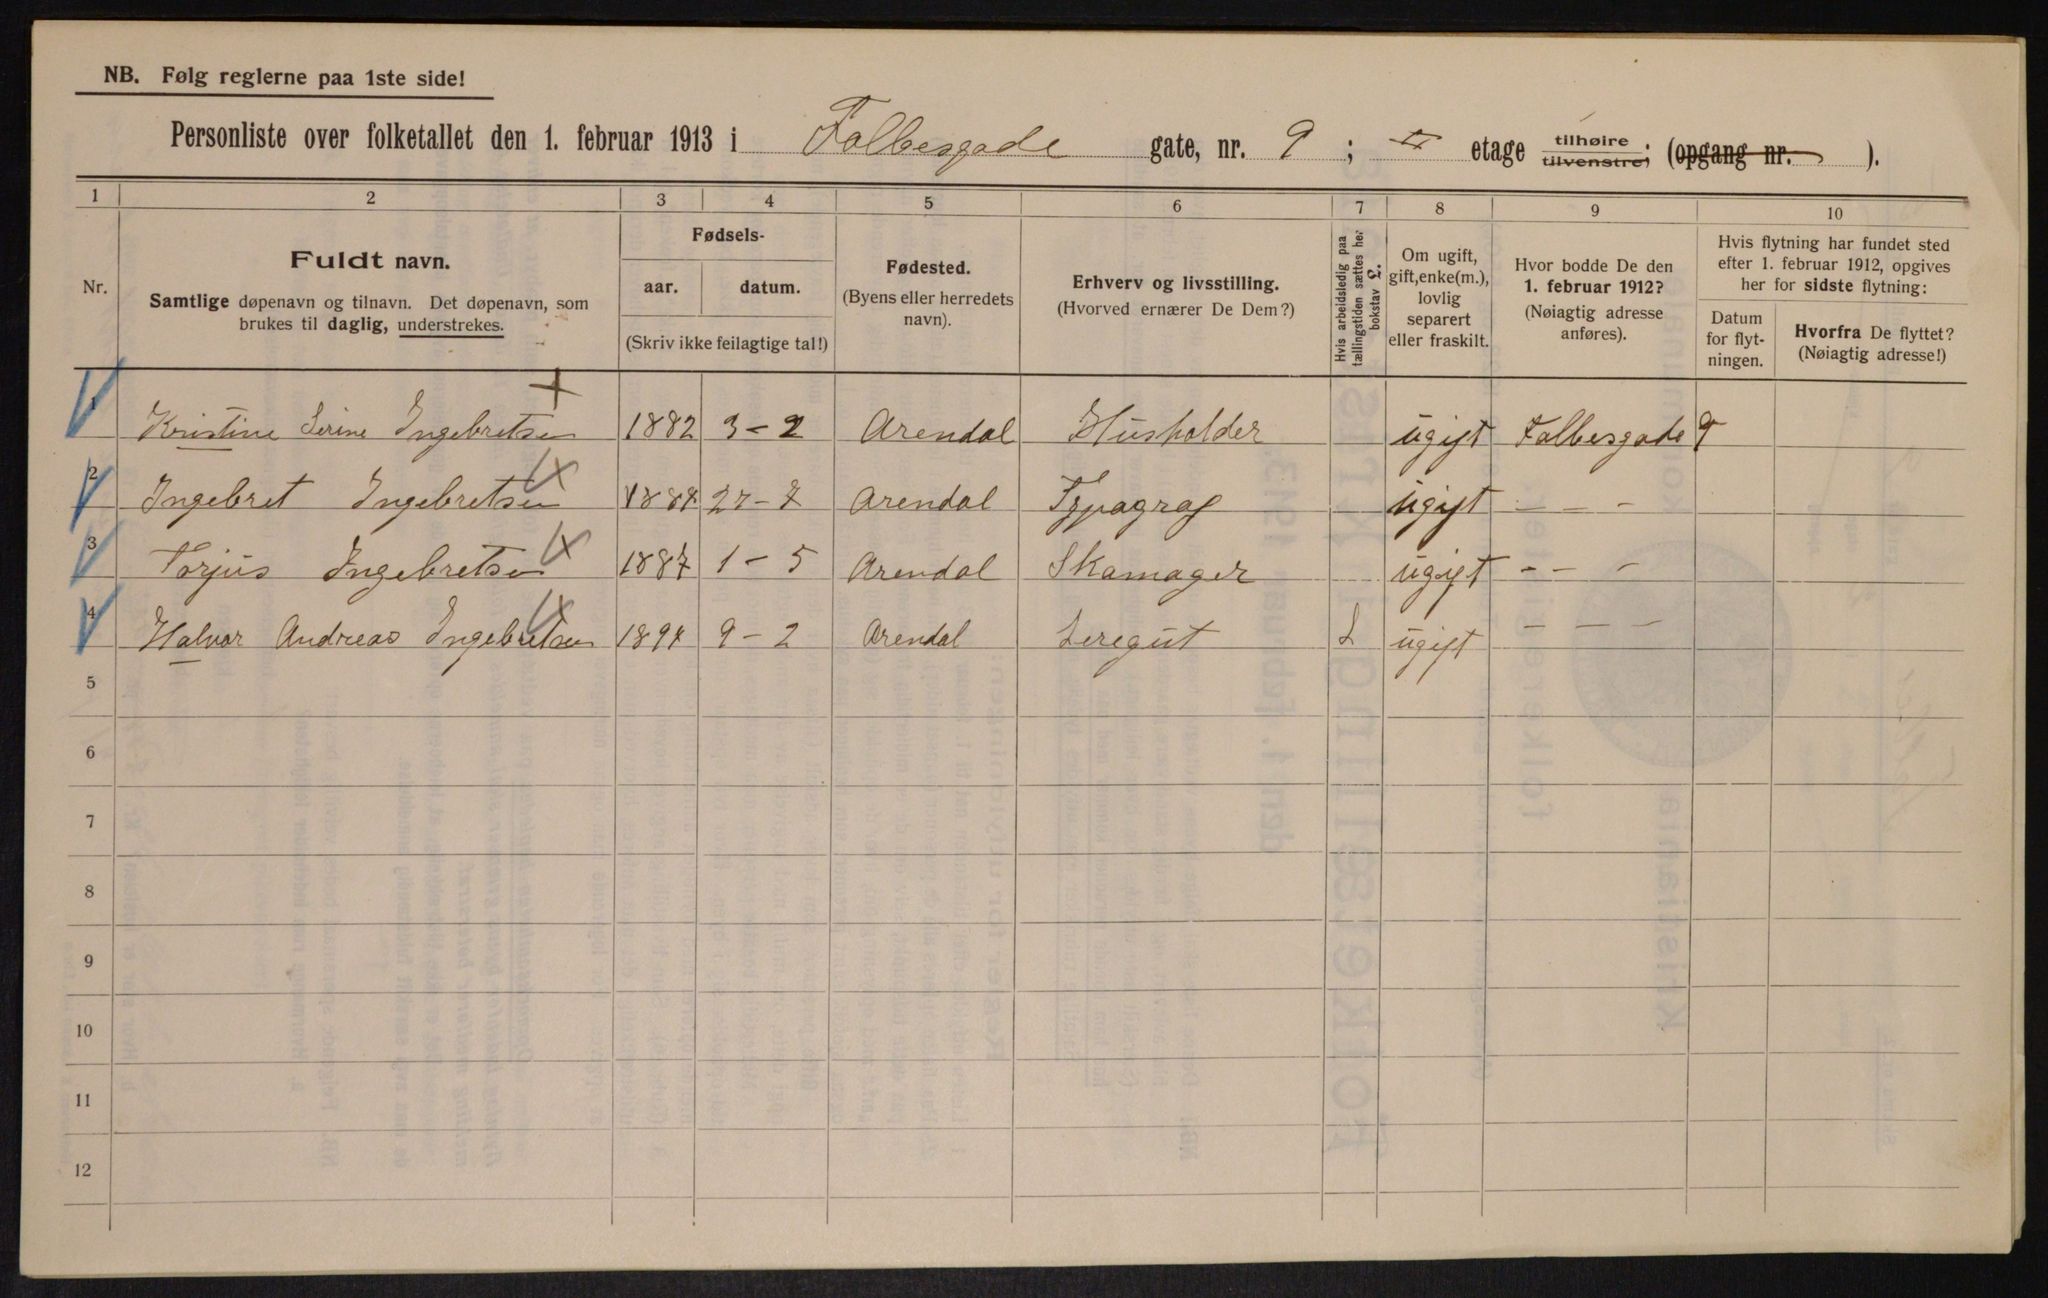 NB. Følg reglerne paa 1ste side!
Personliste over folketallet den 1. februar 1913 i Falbesgade gate, nr. 9; II etage tilhøire tilvenstre; (opgang nr. ).
1 2 3 4 5 6 7 8 9 10
Nr.
Fuldt navn.
Samtlige døpenavn og tilnavn. Det døpenavn, som
brukes til daglig, understrekes.
Fødsels-
aar. datum.
(Skriv ikke feilagtige tal!)
Fødested.
(Byens eller herredets
navn).
Erhverv og livsstilling.
(Hvorved ernærer De Dem?)
Hvis arbeidsledig paa
tællingstiden sættes her
bokstav L.
Om ugift,
gift, enke(m.),
lovlig
separert
eller fraskilt.
Hvor bodde De den
1. februar 1912?
(Nøiagtig adresse
anføres).
Hvis flytning har fundet sted
efter 1. februar 1912, opgives
her for sidste flytning:
Datum
for flyt-
ningen.
Hvorfra De flyttet?
(Nøiagtig adresse!)
1 Kristine Serine Ingebretsen 1882 3-2 Arendal Husholder ugift Falbesgade 9
2 Ingebret Ingebretsen 27-7 Arendal Typograf ugift — — —
3 Torjus Ingebretsen 1887 1-5 Arendal Skomager ugift — — —
4 Halvor Andreas Ingebretsen 9-2 Arendal Leregut L ugift — — —
5
6
7
8
9
10
11
12